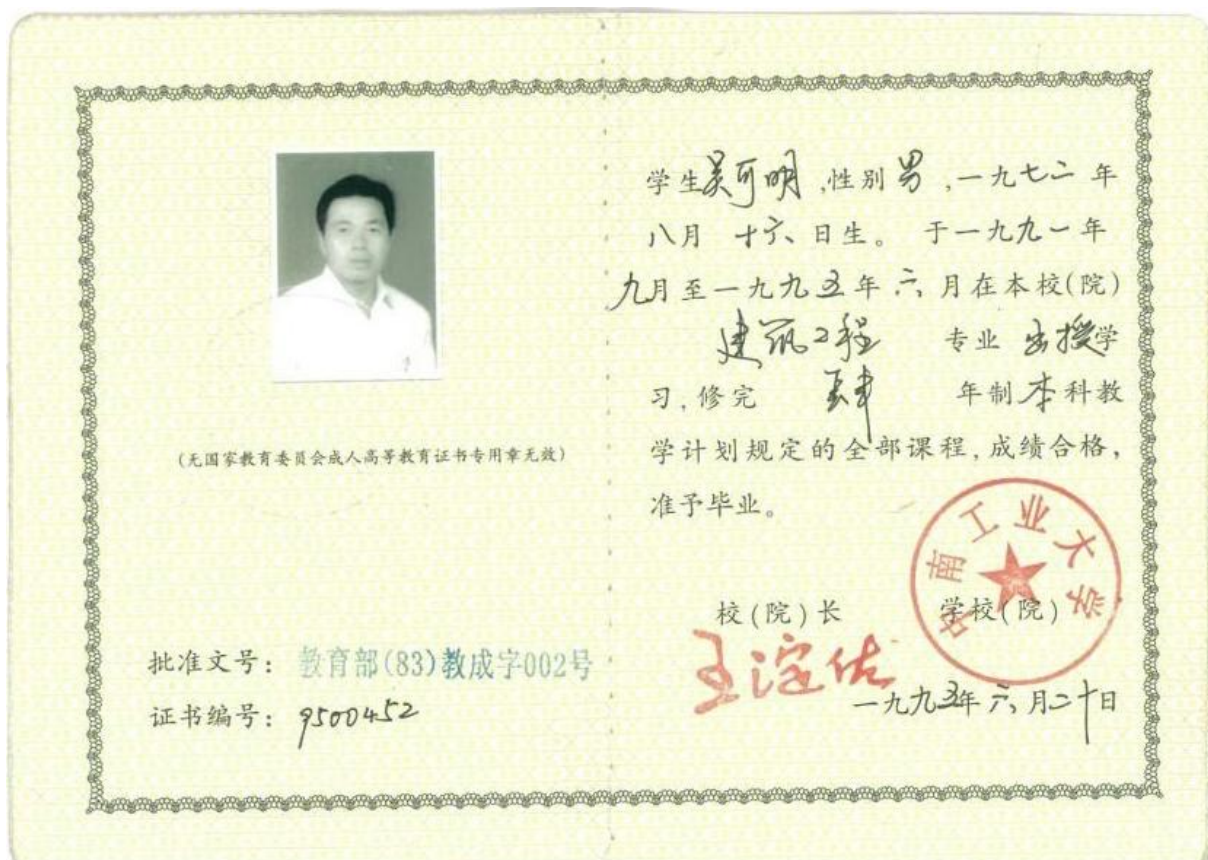 (无国家教育委员会成人高等教育证书专用章无效)
批准文号: 教育部(83)教成字002号
证书编号: 9500452
学生吴可明,性别男,一九七二年
八月十六日生。于一九九一年
九月至一九九五年六月在本校(院)
建筑工程 专业函授学
习,修完 肆 年制本科教
学计划规定的全部课程,成绩合格,
准予毕业。
中南工业大学
校(院)长 学校(院)
王淀佐
一九九五年六月二十日